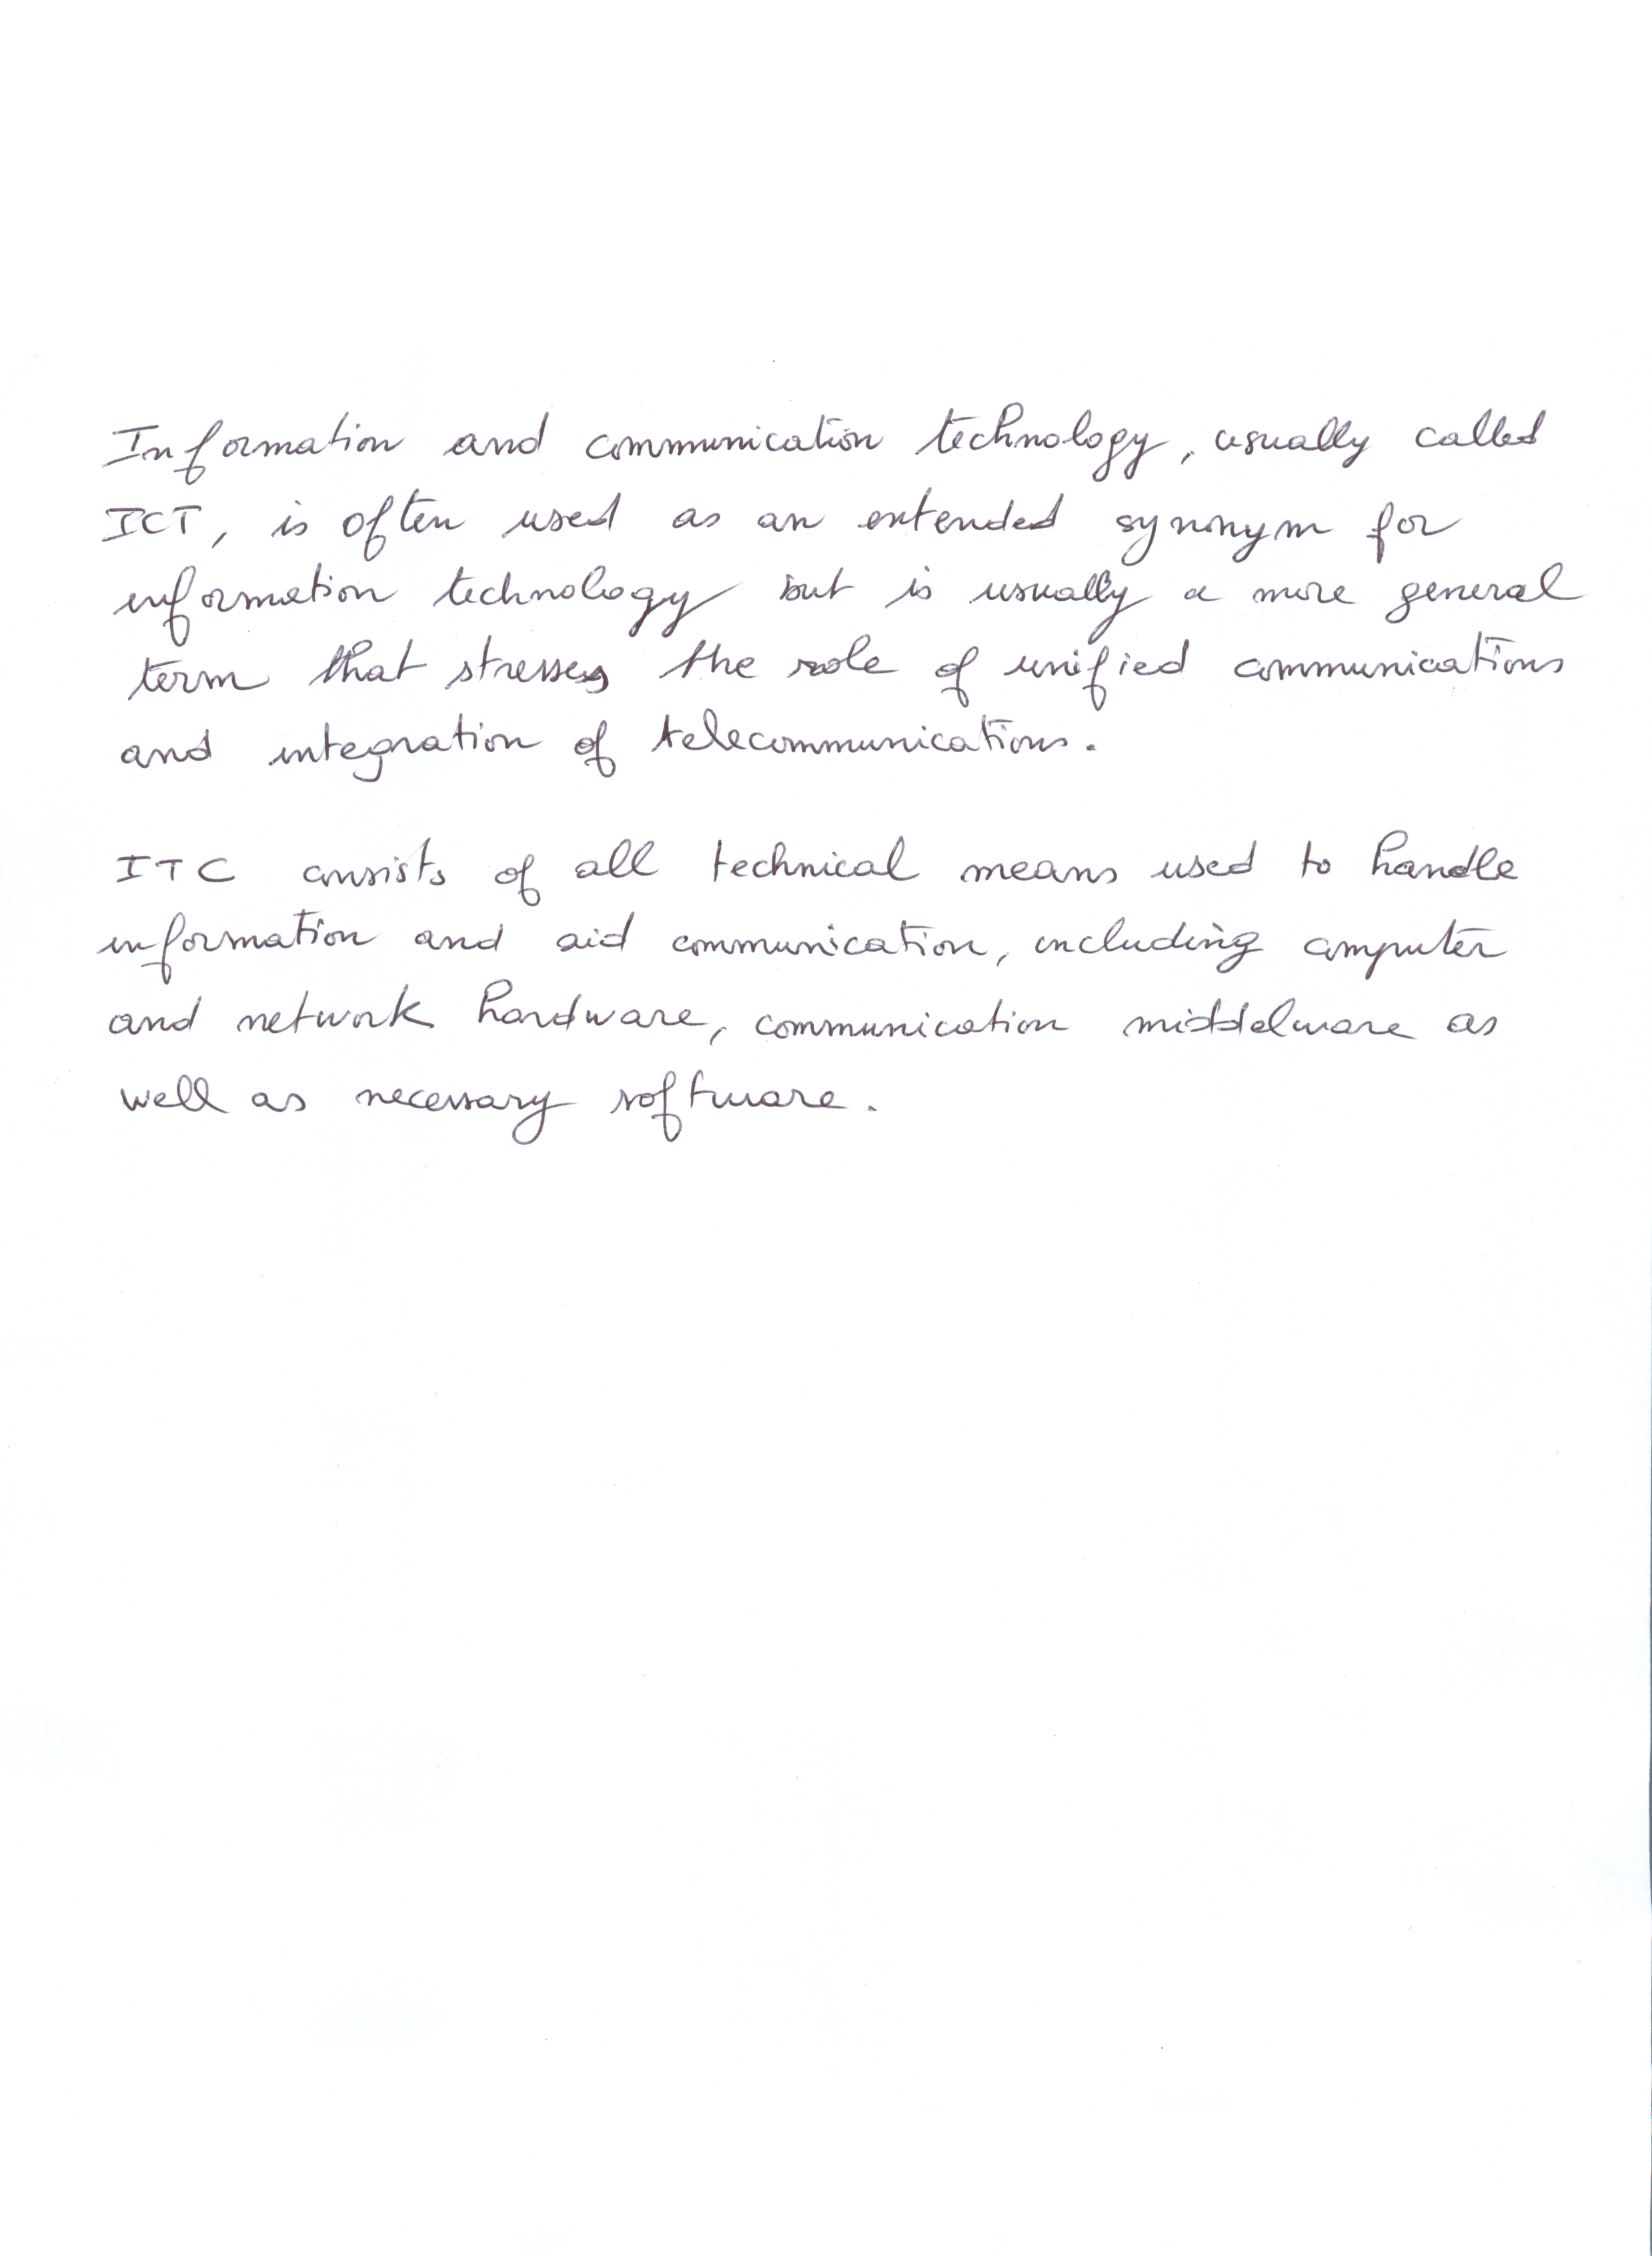 Information and communication technology, usually called
ICT, is often used as an extended synonym for
information technology but is usually a more general
term that stresses the role of unified communications
and integration of telecommunications.
ITC consists of all technical means used to handle
information and aid communication, including computer
and network hardware, communication middelware as
well as necessary software.